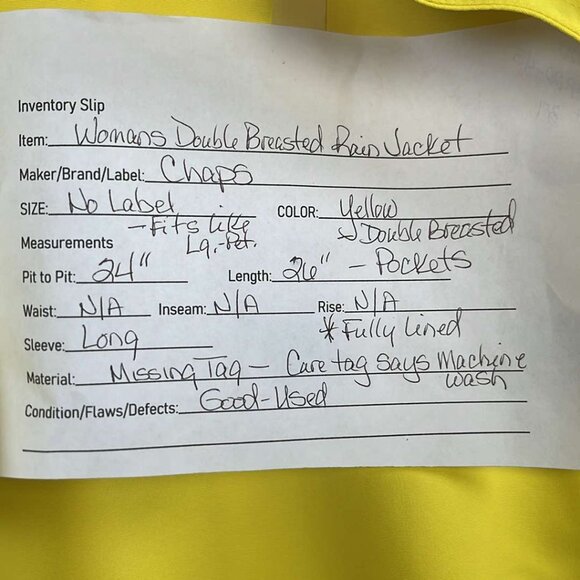 Inventory Slip
Item: Womans Double Breasted Rain Jacket
Maker/Brand/Label: Chaps
SIZE: No Label COLOR: Yellow
- Fits like Lg.-Pet. ↳ Double Breasted
Measurements
Pit to Pit: 24" Length: 26" - Pockets
Waist: N/A Inseam: N/A Rise: N/A
Sleeve: Long * Fully Lined
Material: Missing Tag - Care tag says Machine wash
Condition/Flaws/Defects: Good-Used